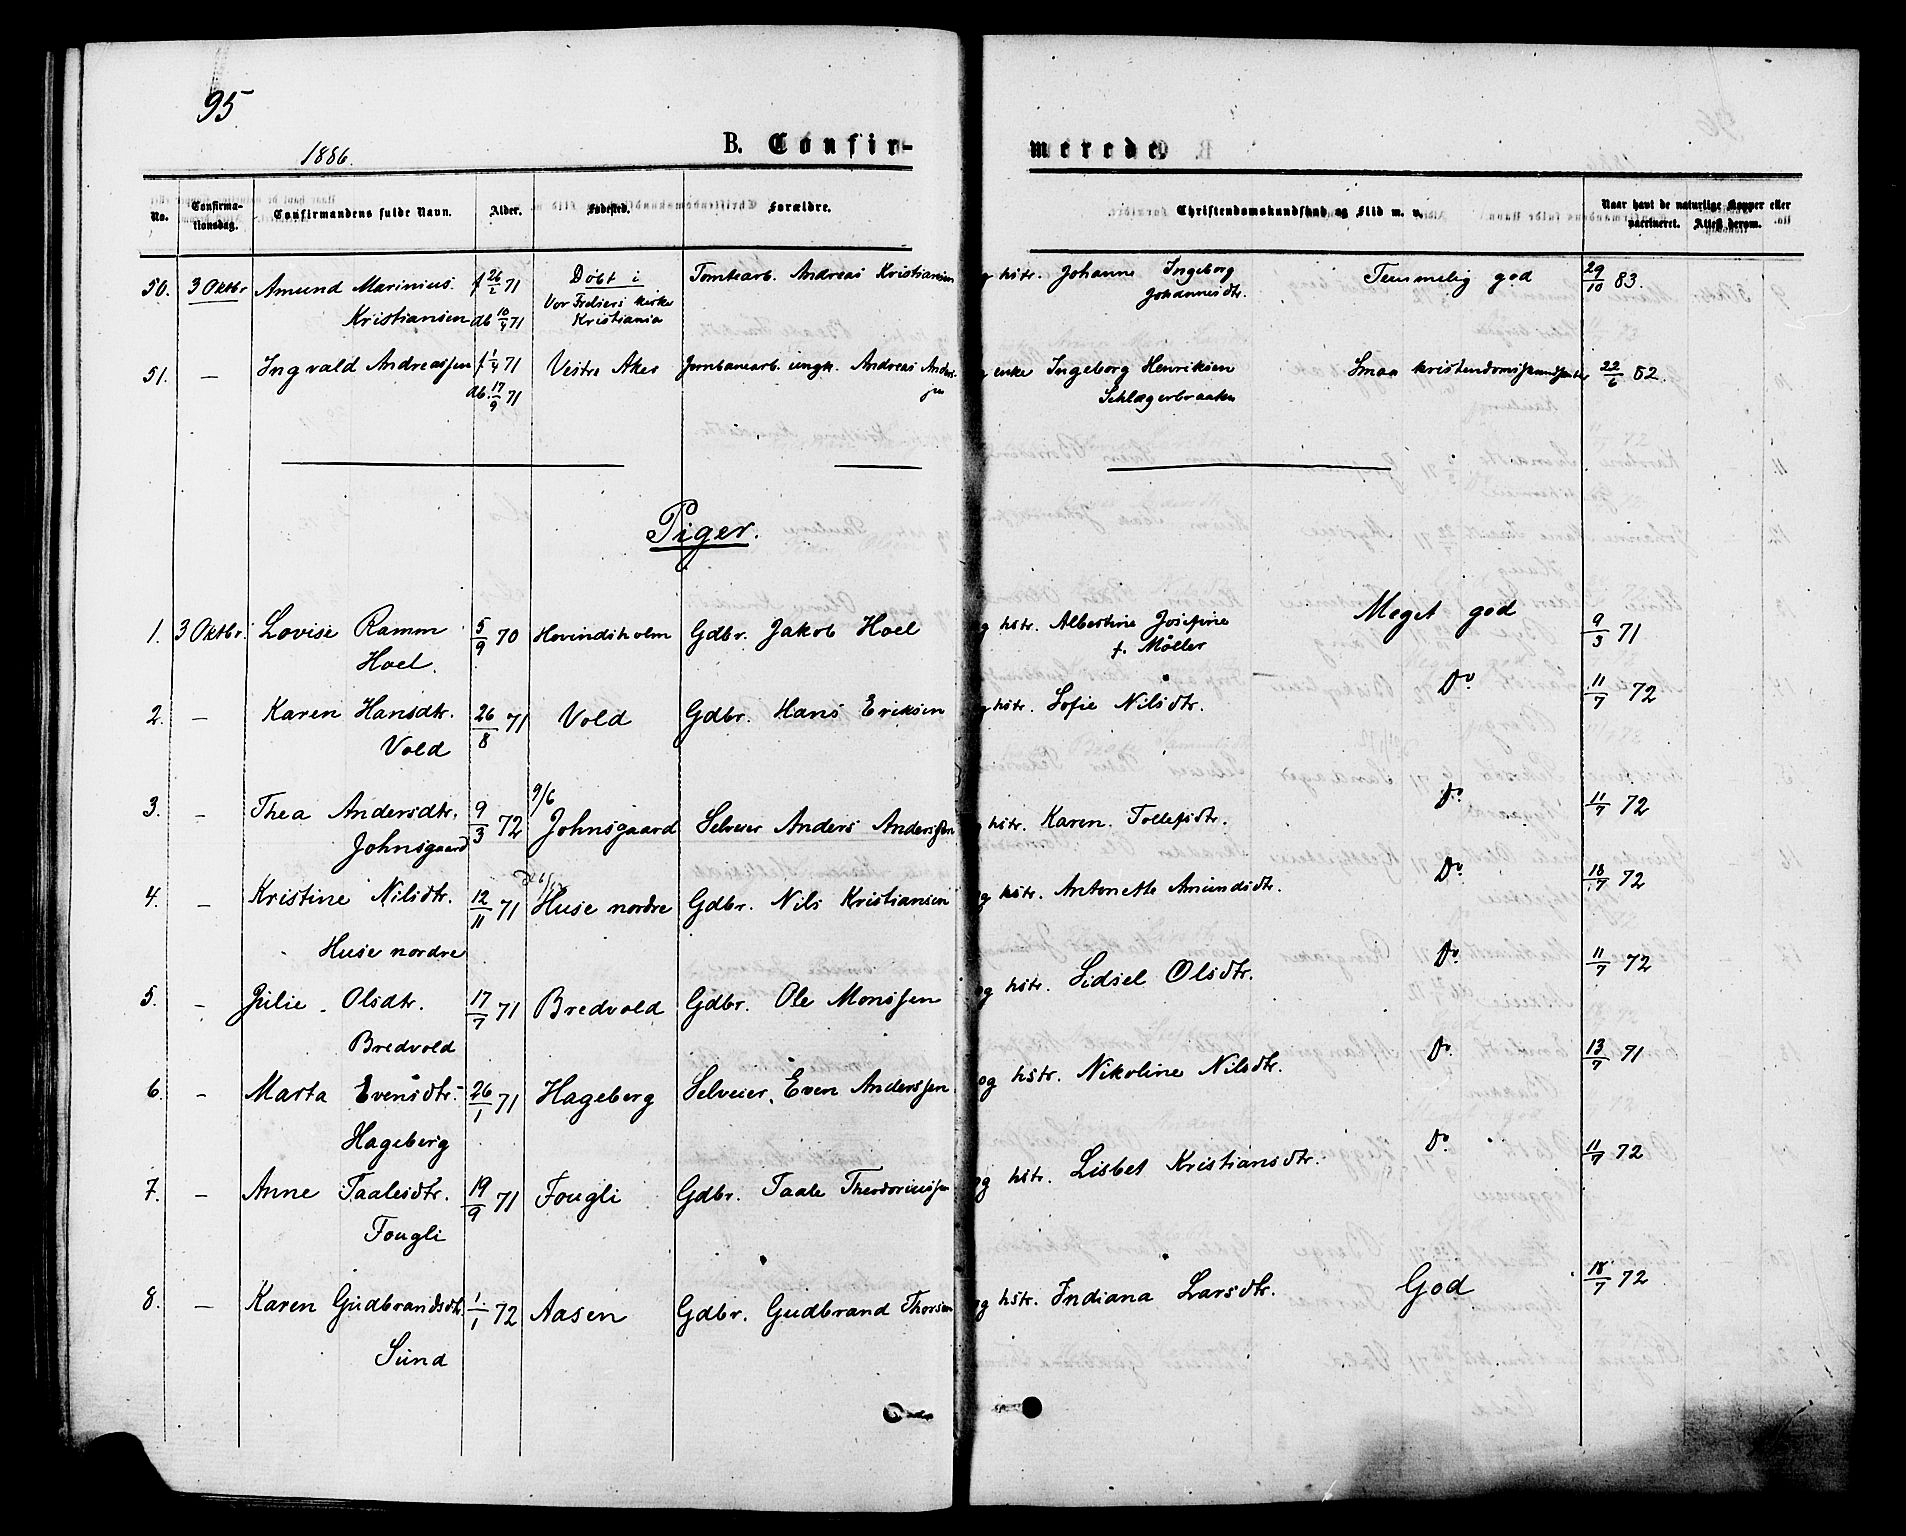 95
1886.
B. Confirmerede.
No. Confirmationsdag. Confirmandens fulde Navn. Alder. Fødested. Forældre. Christendomskundskab og Flid m. v. Naar havt de naturlige Kopper eller vaccineret. Attest derom.
50. 3 Oktbr Amund Marinius f 26/2 71 Døbt i Tomtearb. Andreas Kristiansen og hstr. Johanne Ingeborg Temmelig god 29/10 83.
Kristiansen db 10/4 71 Vor Frelsers kirke Johannesdtr.
Kristiania
51. — Ingvald Andreassen f 1/4 71 Vestre Aker Jernbanearb. ungk. Andreas Anders- og enke Ingeborg Henriksen Smaa kristendomskundskaber 22/6 82.
db. 17/9 71 sen Schlagerbraaten
Piger.
1. 3 Oktbr. Lovise Ramm 5/9 70 Hovindsholm Gdbr. Jakob Hoel og hstr. Albertine Josefine Meget god 9/3 71
Hoel. f. Møller
2. — Karen Hansdtr. 26/8 71 Vold Gdbr. Hans Eriksen og hstr. Sofie Nilsdtr. Do 11/7 72
Vold
9/6
3. — Thea Andersdtr. 9/3 72 Johnsgaard Selveier Anders Anderssen og hstr. Karen Tollefsdtr. Do 11/7 72
Johnsgaard
4. — Kristine Nilsdtr. 12/11 71 Huse nordre Gdbr. Nils Kristiansen og hstr. Antonette Amundsdtr. Do 18/7 72
Huse nordre
5. — Julie Olsdtr. 17/7 71 Bredvold Gdbr. Ole Monssen og hstr. Sidsel Olsdtr. Do 11/7 72
Bredvold
6. — Marta Evensdtr. 26/1 71 Hageberg Selveier Even Anderssen og hstr. Nikoline Nilsdtr. Do 13/7 71
Hageberg
7. — Anne Taalesdtr. 19/9 71 Fougli Gdbr. Taale Theodorinssen og hstr. Lisbet Kristiansdtr. Do 11/7 72
Fougli
8. — Karen Gudbrandsdtr 1/1 72 Aasen Gdbr. Gudbrand Thorsen og hstr. Indiana Larsdtr. God 18/7 72
Sund